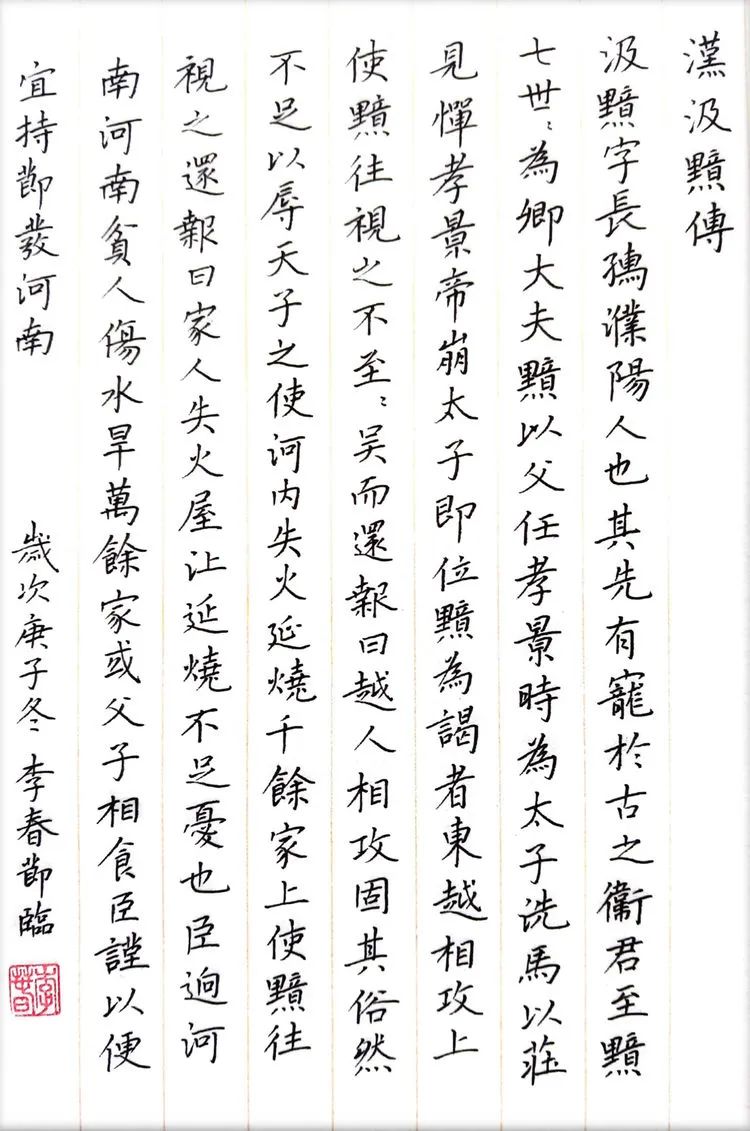 漢汲黯傳
汲黯字長孺濮陽人也其先有寵於古之衛君至黯
七世〻為卿大夫黯以父任孝景時為太子洗馬以莊
見憚孝景帝崩太子即位黯為謁者東越相攻上
使黯往視之不至〻吳而還報曰越人相攻固其俗然
不足以辱天子之使河内失火延燒千餘家上使黯往
視之還報曰家人失火屋比延燒不足憂也臣過河
南河南貧人傷水旱萬餘家或父子相食臣謹以便
宜持節發河南
歲次庚子冬李春節臨
李春